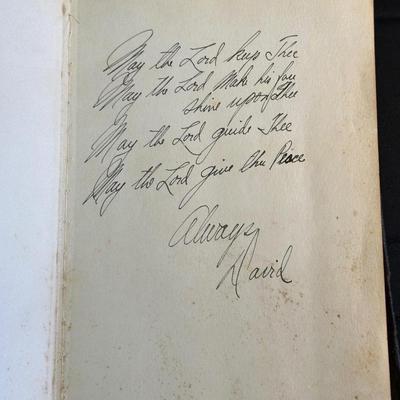 May the Lord keep Thee
May the Lord Make his face
shine upon Thee
May the Lord guide Thee
May the Lord give Peace
Always
David